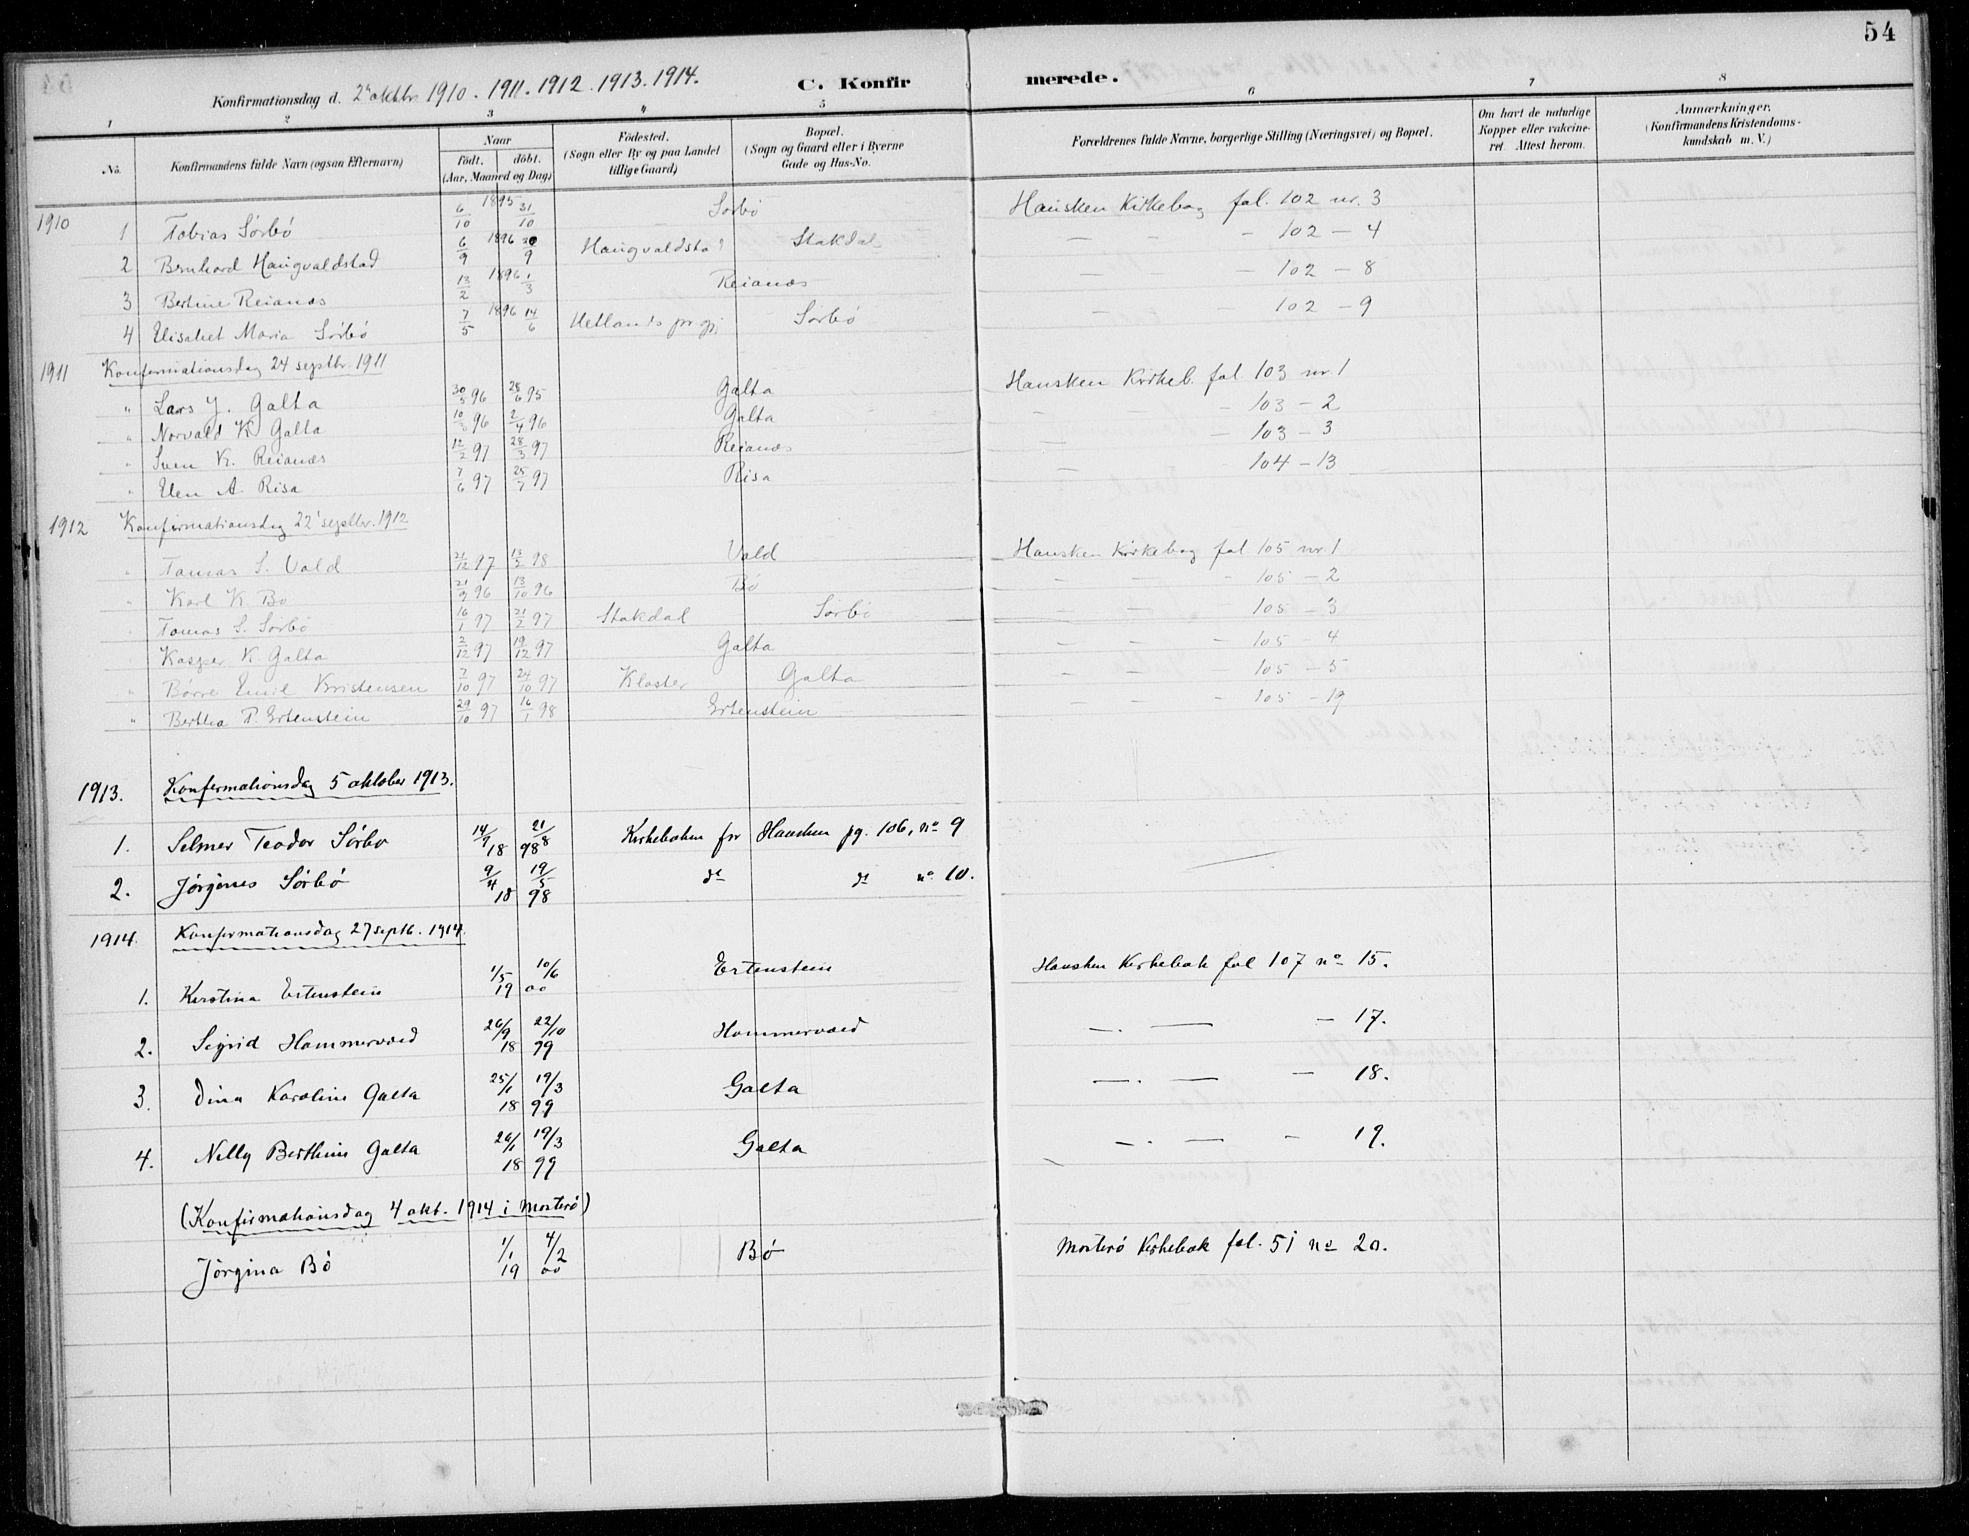 54
Konfirmationsdag d. 2' oktbr 1910. 1911. 1912. 1913. 1914. C. Konfirmerede.
1 2 3 4 5 6 7 8
No. Konfirmandens fulde Navn (ogsaa Efternavn) Naar født. døbt. (Aar, Maaned og Dag) Fødested. (Sogn eller By og paa Landet tillige Gaard) Bopæl. (Sogn og Gaard eller i Byerne Gade og Hus-No. Forældrenes fulde Navne, borgerlige Stilling (Næringsvei) og Bopæl. Om havt de naturlige Kopper eller vakcineret. Attest herom. Anmærkninger. (Konfirmandens Kristendomskundskab m. V.)
1910 1 Tobias Sørbø 6/10 1895 31/10 Sørbø Hausken Kirkebog fol. 102 nr. 3
2 Bernhard Haugvaldstad 6/9 1896 20/9 Haugvaldstad Stakdal — — - 102 — 4
3 Bertine Reianæs 13/2 1896 1/3 Reianæs — - 102 — 8
4 Elisabet Maria Sørbø 7/5 1896 14/6 Hetlands prgj. Sørbø — - 102 — 9
1911 Konfirmationsdag 24 septbr. 1911
" Lars J. Galta 30/5 96 28/6 95 Galta Hausken Kirkeb. fol. 103 nr. 1
" Norvald K. Galta 10/ 96 2/4 96 Galta - - 103 — 2
" Sven K. Reianæs 12/2 97 28/3 97 Reianæs — - 103 — 3
" Elen A. Risa 7/6 97 25/7 97 Risa — 104 — 13
1912 Konfirmationsdag 22' septbr. 1912
" Tomas S. Vold 21/12 97 13/2 98 Vold Hausken Kirkebog fol 105 nr. 1
" Karl K. Bø 21/9 96 13/10 96 Bø - — - 105 — 2
" Tomas S. Sørbø 16/1 97 21/2 97 Stakdal Sørbø — — 105 — 3
Kasper K. Galta 2/12 97 19/12 97 Galta — — - 105 — 4
" Børre Emil Kristensen 7/10 97 24/10 97 Kloster Galta — — 105 — 5
" Bertha T. Ertenstein 29/10 97 16/1 98 Ertenstein - — - 105 — 19
1913. Konfirmationsdag 5 oktober 1913.
1. Selmer Teodor Sørbø 14/9 21/8 18 98 Kirkeboken for Hausken pg. 106, no 9
2. Jørgines Sørbø 9/4 19/5 18 98 do do no 10.
1914. Konfirmationsdag 27 septb. 1914.
1. Kirstina Ertenstein 1/5 10/6 19 00 Ertenstein Hausken Kirkebok fol 107 no 15.
2. Sigrid Hammervold 26/9 22/10 18 99 Hammervold —. — — 17.
3. Dina Karoline Galta 25/1 19/3 18 99 Galta —. — — 18.
4. Nelly Berthine Galta 26/1 19/3 18 99 Galta —. — — 19.
(Konfirmationsdag 4 okt. 1914 i Mosterø)
Jørgina Bø 1/1 4/2 19 00 Bø Mosterø Kirkebok fol. 51 no 20.